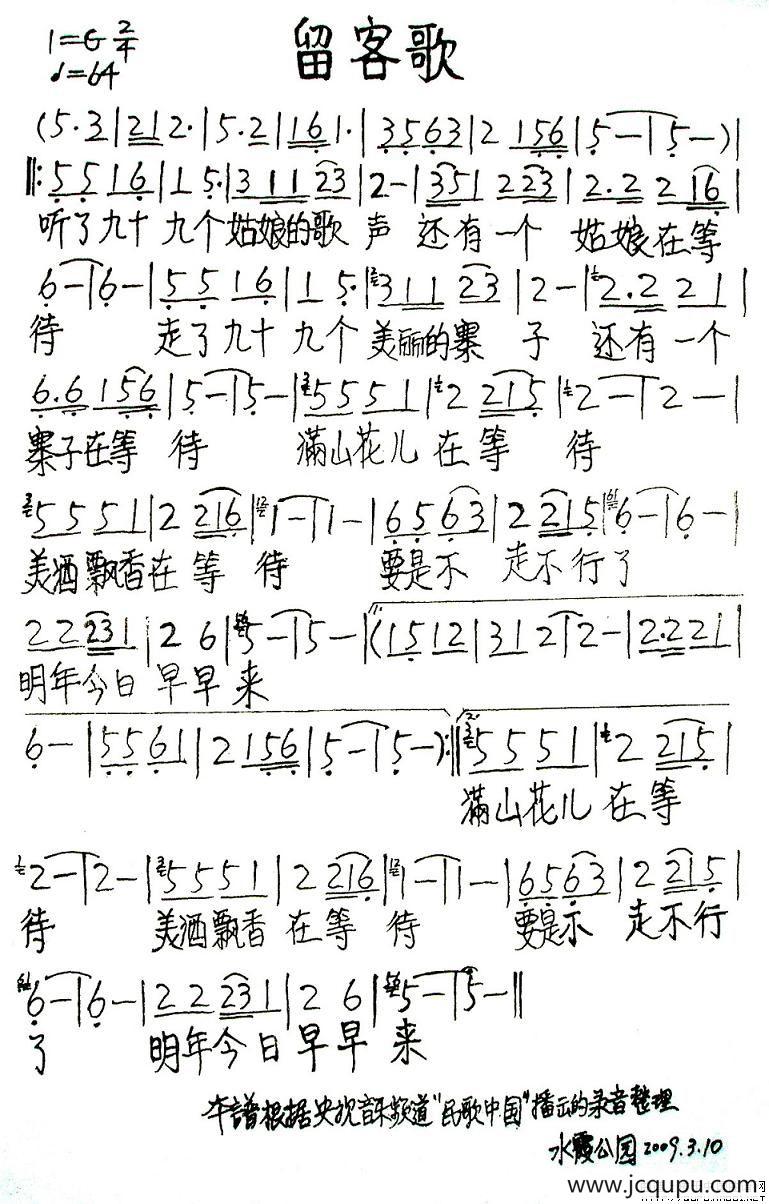 留客歌
1=G 2/4
♩=64
(5·3|21 2·|5·2|16 1·|3563|2 156|5—|5—)|
‖:5516|1 5·|3 11 23|2—|351 223|2·2 216|
听了九十九个姑娘的歌声 还有一个 姑娘在等
6—|6—|5516|1 5·|311 23|2—|2·2 21|
待 走了九十九个美丽的寨子 还有一个
6·6 156|5—|5—|5551|2 215|2—|2—|
寨子在等待 满山花儿在等待
5551|2 216|1—|1—|6563|2 215|6—|6—|
美酒飘香在等待 要是不 走不行了
22231|2 6|5—|5—|(1512|312|2—|2·221|
明年今日早早来
6—|5561|2 156|5—|5—):‖5551|2 215|
满山花儿在等
2—|2—|5551|2 216|1—|1—|6563|2 215|
待 美酒飘香在等待 要是不 走不行
6—|6—|22231|2 6|5—|5—‖
了 明年今日早早来
本谱根据央视音乐频道"民歌中国"播出的录音整理
水霞公园2009.3.10
www.jcqupu.com